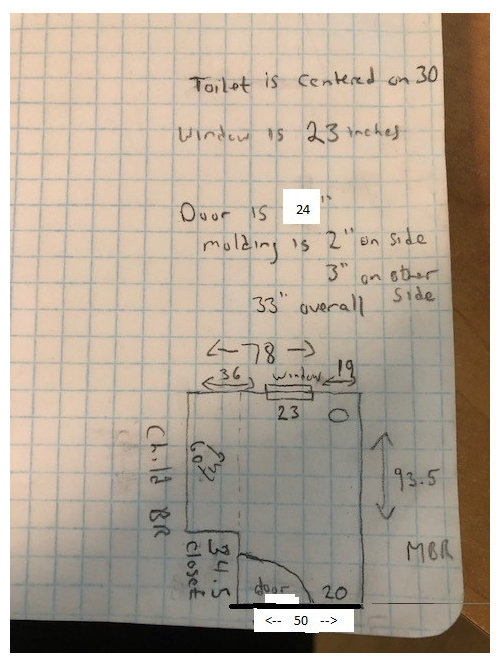 Toilet is centered on 30
Window is 23 inches
Door is 24"
molding is 2" on side
3" on other
side
33" overall
<- 78 ->
36
window
19
23
60
Child BR
93.5
MBR
34.5
closet
door
20
<-- 50 -->